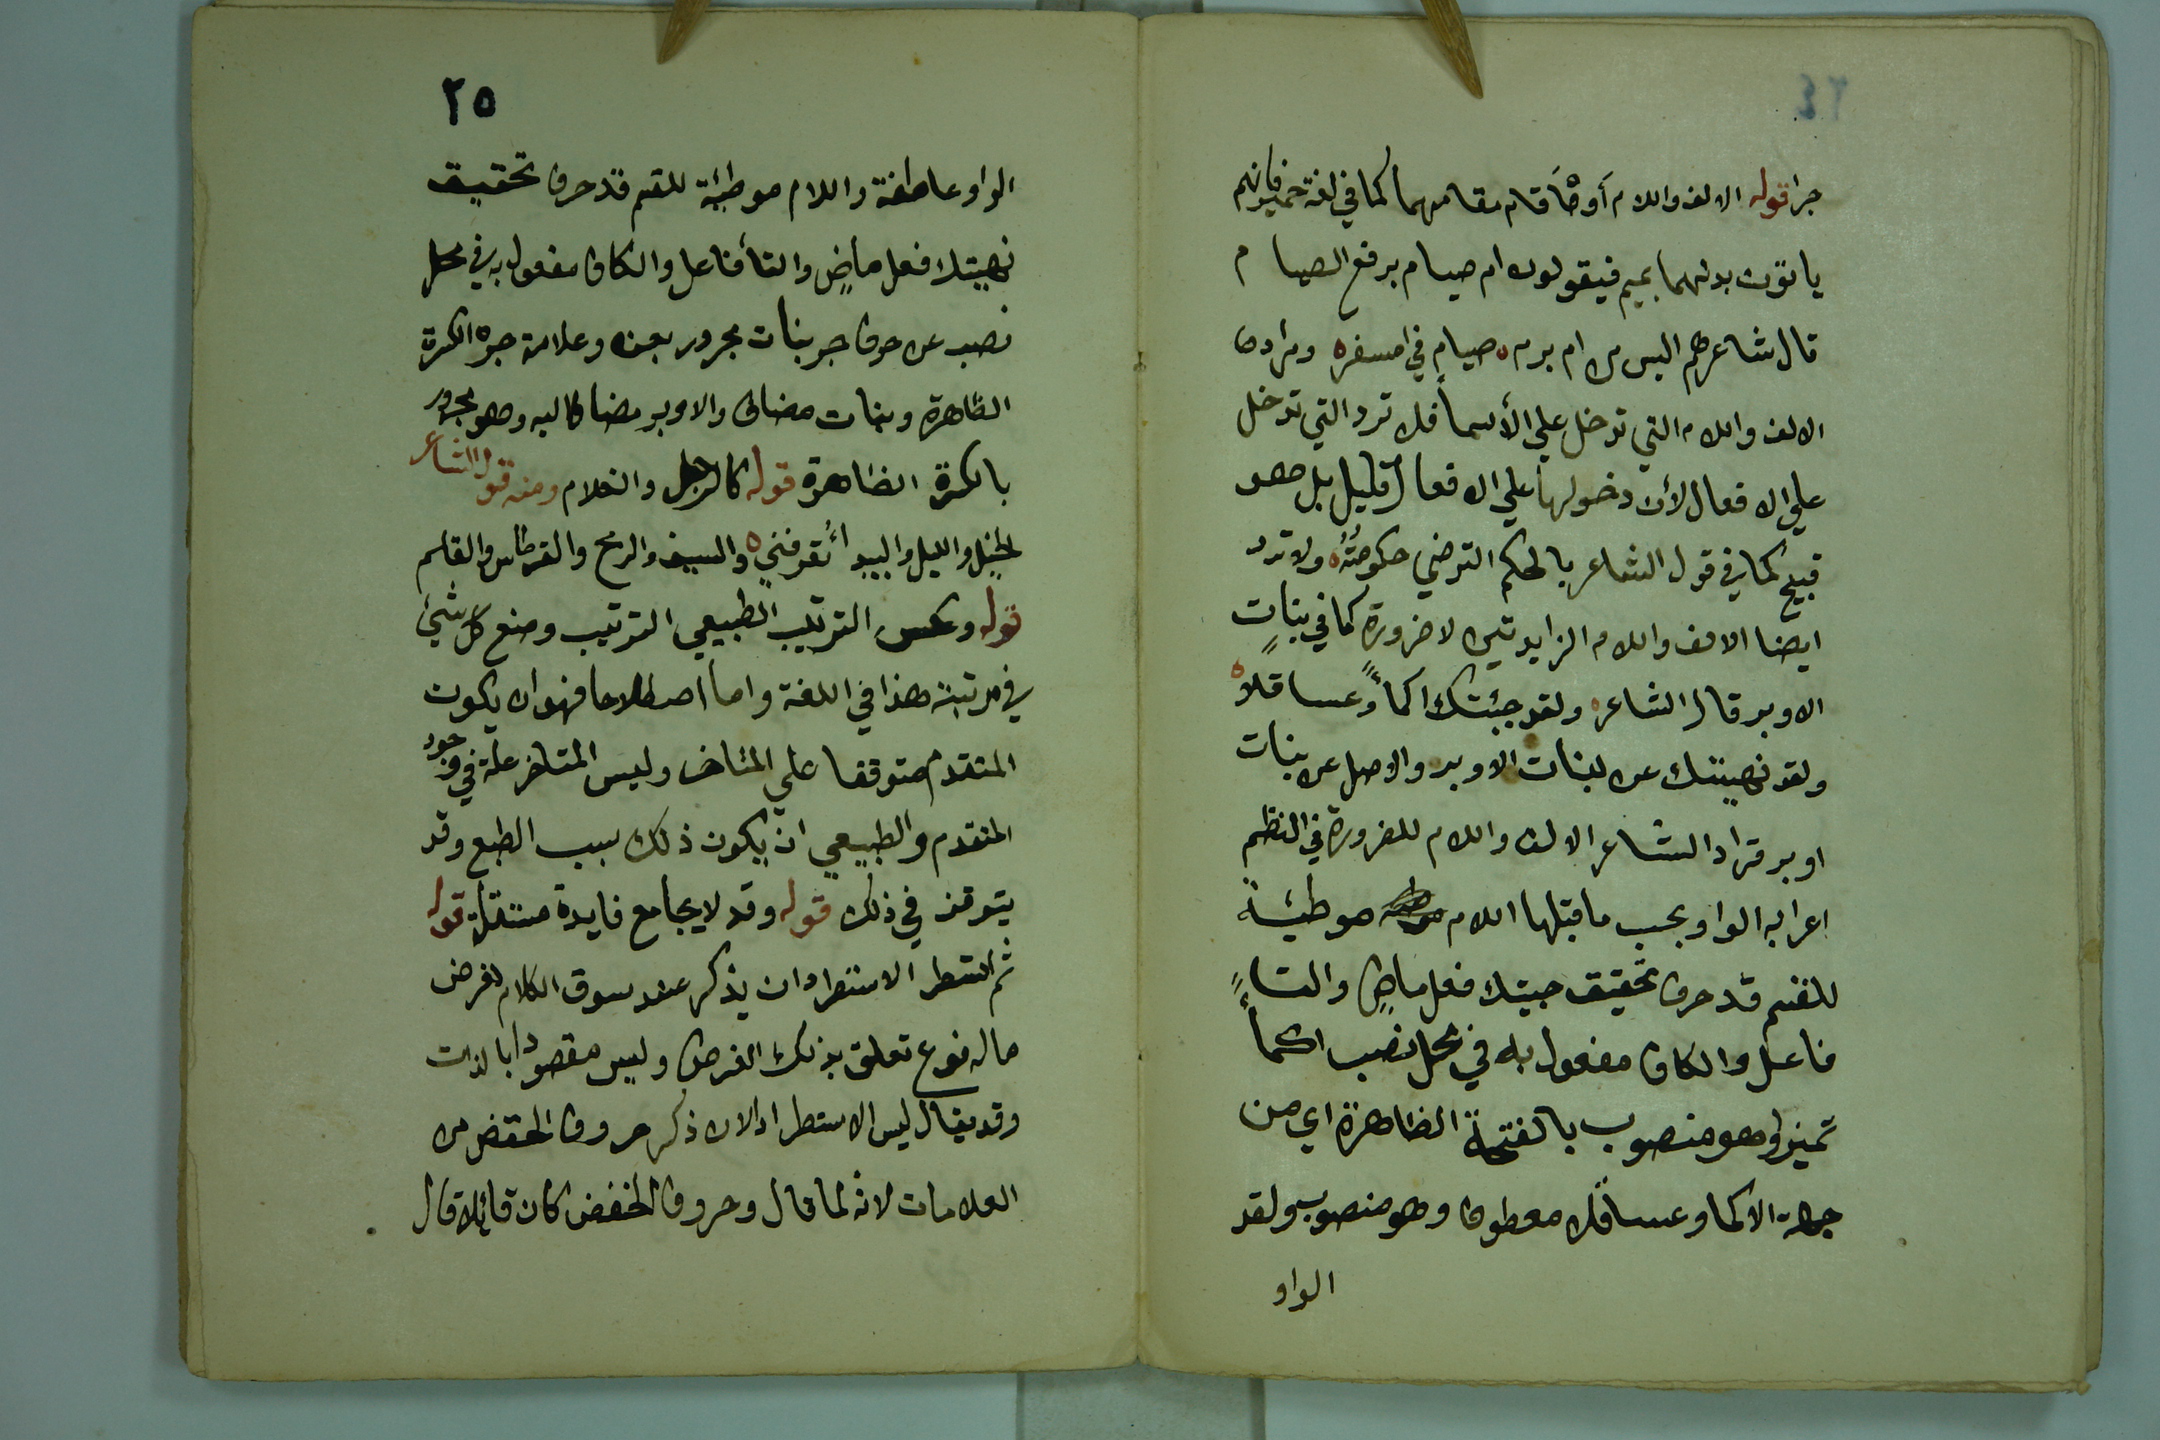 ٢٤
جرا قوله الالف واللام أو مَا قام مقامهما كما في لغة حمير فانهم
ياتون بدلهما بميم فيقولون ام صيام برفع الصيام
قال شاعرهم اليس من ام برم صيام في امسفره ومرادها
الالف واللام التي تدخل علي الأسما فلا ترد التي تدخل
علي الافعال لأن دخولها علي الافعال قليل بل هو
قبيح كما في قول الشاعر بالحكم الترضي حكومتُهُ ولا ترد
ايضا الالف واللام الزايدتين لا ضرورة كما في بناتٍ
الاوبر قال الشاعر ولقد جئتك اكمأً وعساقلا
ولقد نهيتك عن لبنات الاوبر والاصل عن بنات
اوبر فزاد الشاعر الالف واللام للضرورة في النظم
اعرابه الواو بحسب ما قبلها اللام موطئة
للقسم قد حرف تحقيق جيتك فعل ماضٍ والتاء
فاعل والكاف مفعول به في محل نصب اكمأً
تميز وهو منصوب بالفتحة الظاهرة اي من
جهة الاكما وعساقلا معطوف وهو منصوب ولقد
الواو
٢٥
الواو عاطفة واللام موطئة للقسم قد حرف تحقيق
نهيتك فعل ماضٍ والتأ فاعل والكاف مفعول به في محل
نصب عن حرف جر بنات مجرور بعن وعلامة جره الكسرة
الظاهرة وبنات مضاف والاوبر مضاف اليه وهو مجرور
بالكسرة الظاهرة قوله كالرجل والغلام ومنه قول الشاعر
الخيل والليل والبيدأ تعرفني والسيف والرمح والقرطاس والقلم
قوله وعكس الترتيب الطبيعي الترتيب وضع كل شئ
في مرتبته هذا في اللغة واما اصطلاحا فهو ان يكون
المتقدم متوقفا علي المتاخر وليس المتاخر علة في وجود
المتقدم والطبيعي ان يكون ذلك بسبب الطبع وقد
يتوقف في ذلك قوله وقد لا يجامع فايدة مستقلة قوله
ثم استطر الاستطراد ان يذكر عند سوق الكلام لغرض
ما له نوع تعلق بذلك الغرض وليس مقصودا بالذات
وقد يقال ليس الاستطراد لان ذكر حروف الخفض من
العلامات لانه لما قال وحروف الخفض كان قائلا قال